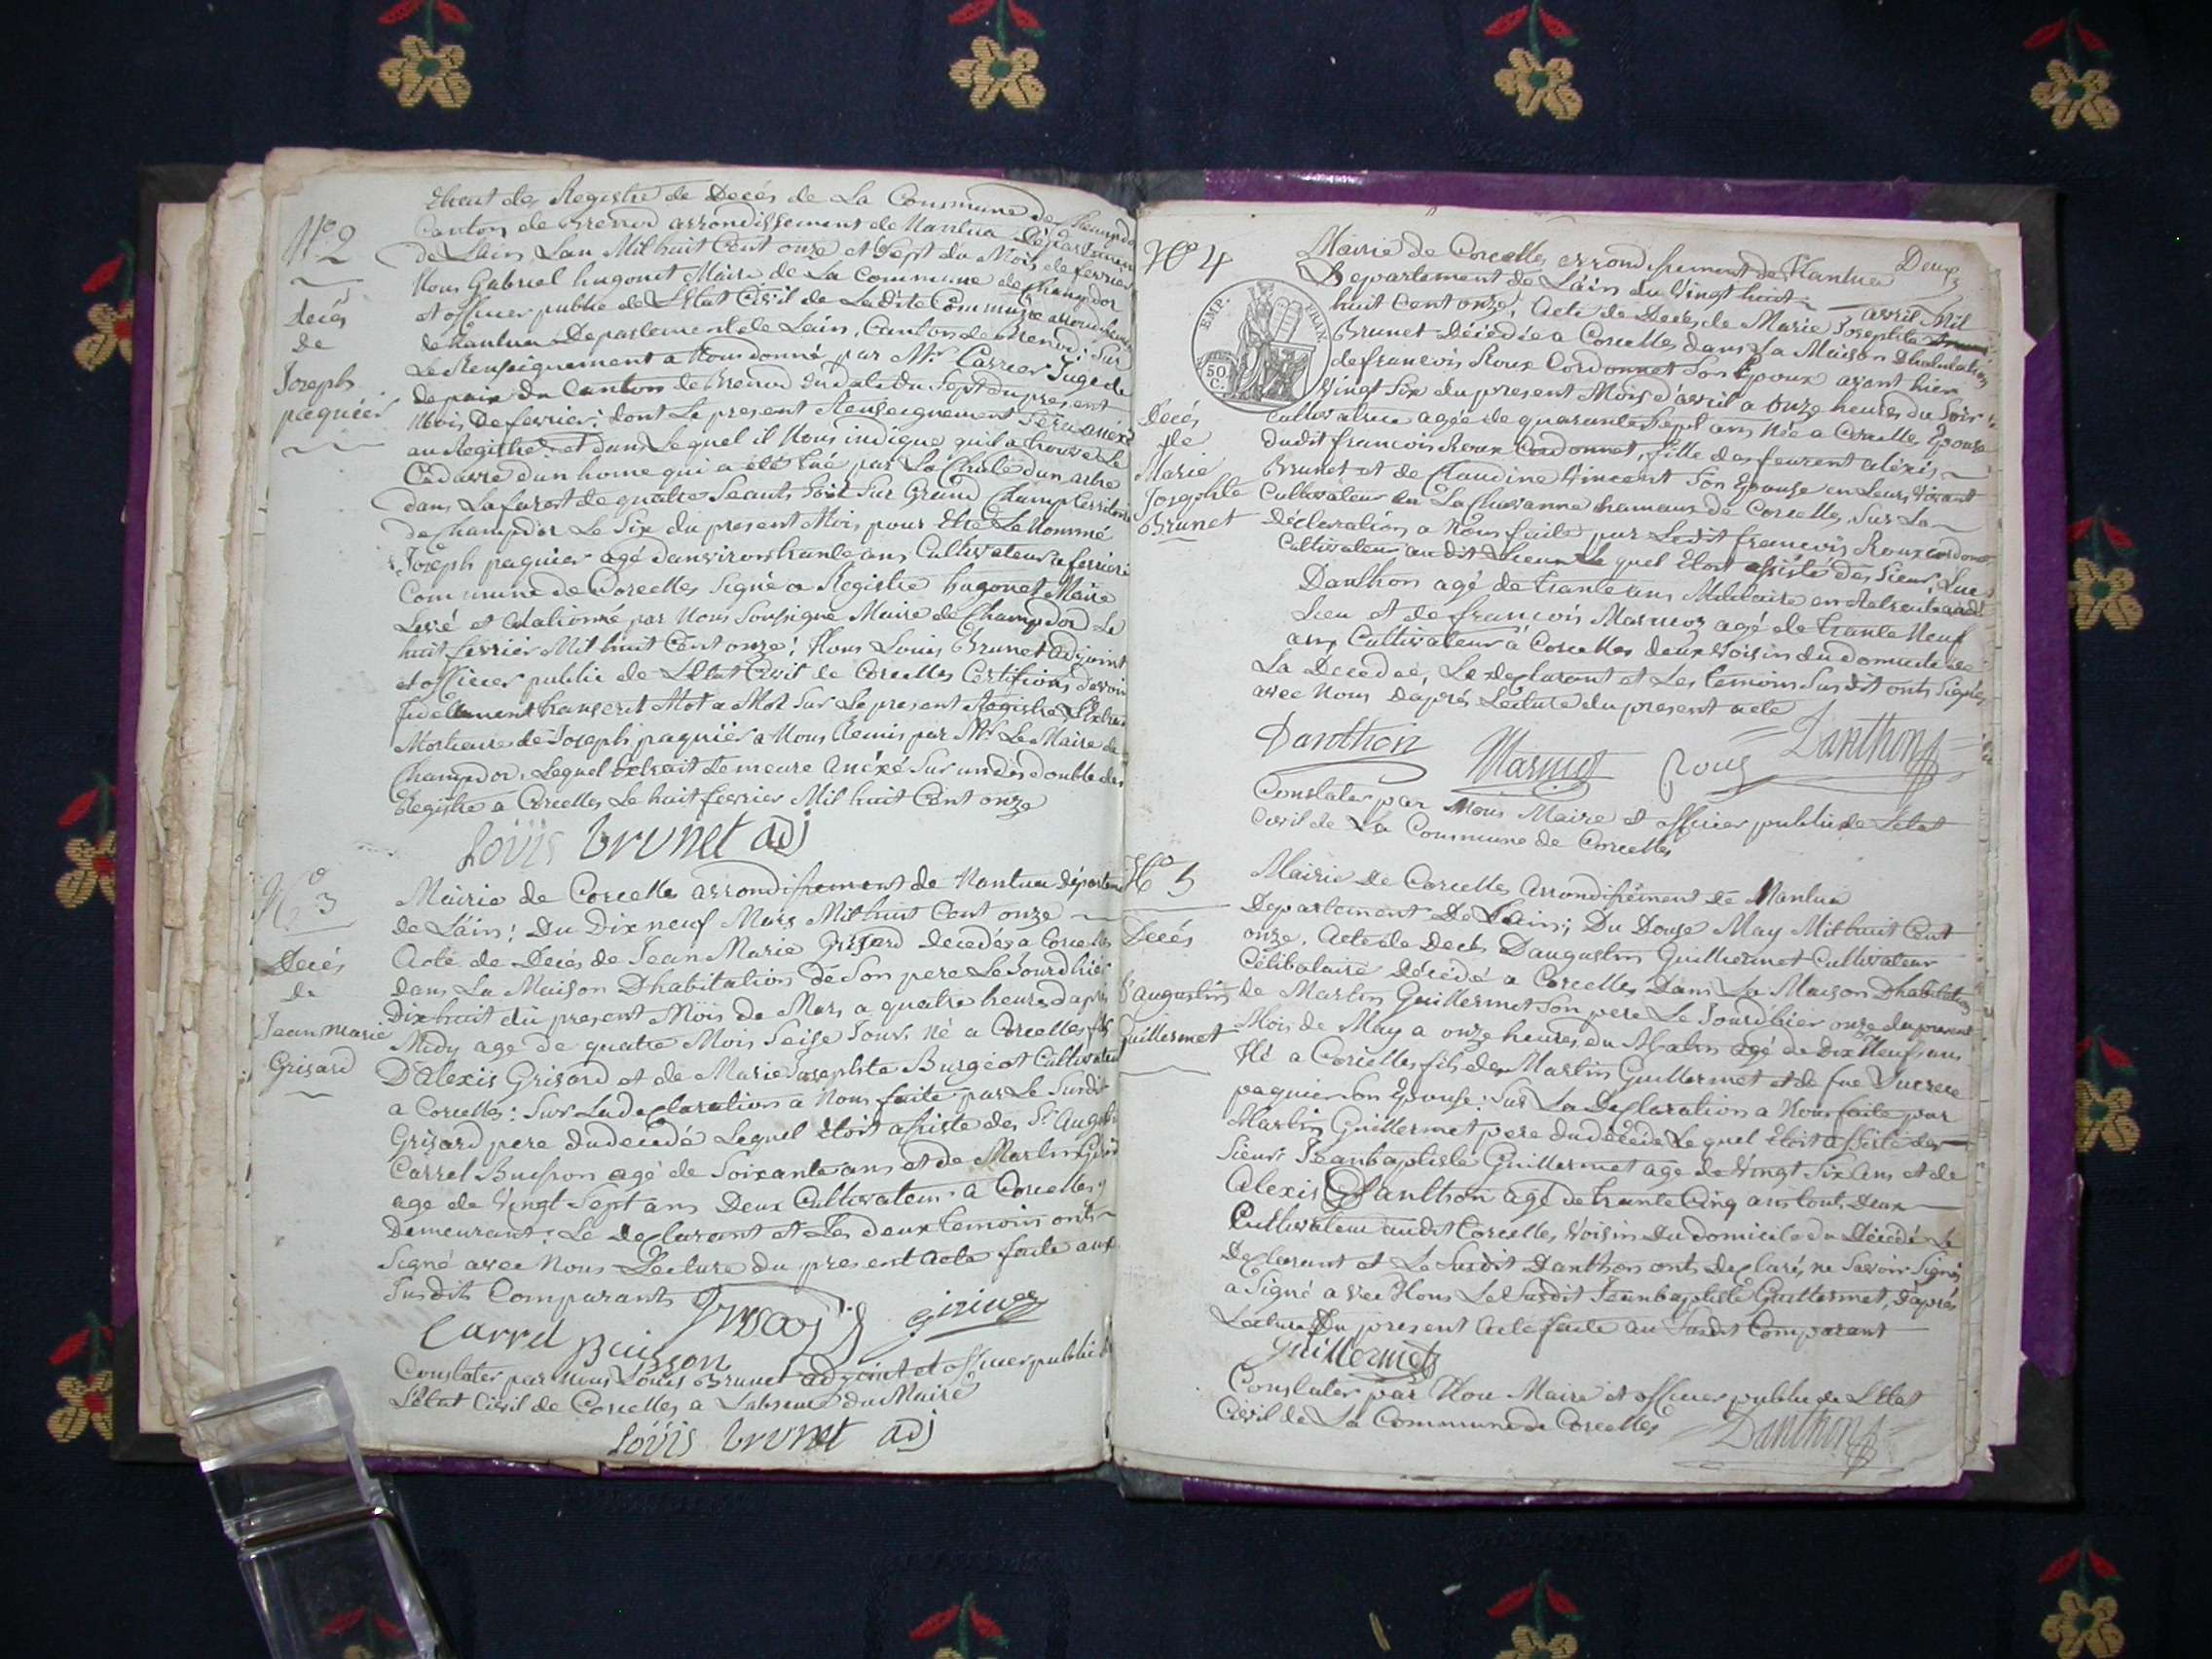 N.o 2
Decés
de
Joseph
paquier
Etrait des Registre de Decés de La Commune de Champdor
Canton de Brenod arrondissement de Nantua Departement
de Lain Lan Mil huit Cent onze et Sept du Mois de fevrier
Nous Gabriel hugonet Maire de La Commune de Champdor
et officier public de L'Etat Civil de Ladite Commune arrondissement
de Nantua Departement de Lain, Canton de Brenod; Sur
Le Renseignement a Nous donné par Mr Carrier Juge de
de paix du Canton de Brenod en date du Sept du present
Mois De fevrier: dont Le present Renseignement Sera anéxé
au Registre et dans Lequel il Nous indique quil a trouve Le
Cadavre dun home qui a été tué par La Chute dun arbre
dans La forot de quatre Seants Soit Sur Grand Champ territoire
de Champdor Le Six du present Mois, pour Etre Le Nommé
Joseph paquier agé danviron trante ans Cultivateur a ferriere
Commune de Corcelles Signé a Registre hugonet Maire
Levé et Colationné par Nous Sousigne Maire de Champdor Le
huit fevrier Mil huit Cent onze; Nous Louis Brunet adjoint
et officier public de L'Etat Civil de Corcelles Certifions davoir
fidellement transcrit Mot a Mot Sur Le present Registre L'Extrait
Mortuere de Joseph paquier a Nous Remis par Mr Le Maire de
Champdor, Lequel Extrait demeure Anéxé Sur un des double des
Registre a Corcelles Le huit fevrier Mil huit Cent onze
Loüis brunet adj
N.o 3
Decés
de
Jean marie
Grisard
Mairie de Corcelle arrondissement de Nantua départem
de Láin! Du Dix neuf Mars Mil huit Cent onze
Acte de Decés de Jean Marie Grisard decedés a Corcelles
dans La Maison Dhabitation de Son pere Le Jourdhier
Dix huit du present Mois de Mars a quatre heures daprés
Midy age de quatre Mois Seise Jours Né a Corcelles fils
D'alexis Grisard et de Marie Josephte Burgeot Cultivateur
a Corcelles: Sur La declaration a Nous faite par Le Susdit
Grisard pere du decedé Lequel Etoit assiste des Sr Augustin
Carrel Buisson agé de Soixante ans et de Martin
age de Vingt Sept ans Deux Cultivateurs a Corcelles y
Demeurant: Le declarant et Les deux temoins onts
Signé avec Nous Lecture du present acte faite aux
Susdits Comparants
Grisard
Carrel Buisson
Constater par nous Louis Brunet adjoint et officier public de
L'Etat Civil de Corcelles a L'absence du Maire
Loüis brunet adj
N.o 4
EMP. FRAN.
50 C.
Decés
de
Marie
Josephte
Brunet
Deux
Mairie de Corcelles arrondissement de Nantua
Departement de Láin du Vingt huit avril Mil
huit Cent onze; Acte de Decés de Marie Josephte
Brunet Décédée a Corcelles dans La Maison Dhabitation
de francois Roux Cordonnet Son Epoux avant hier
Vingt Six du present Mois d'avril a Onze heures du Soir
Cultivatrice agée de quarante Sept ans Née a Corcelles Epouse
dudit francois Roux Cordonnet, fille des feurent aléxis
Brunet et de Claudine Vincent Son Epouse en Leurs Vivant
Cultivateur En La hamaux de Corcelles, Sur La
Déclaration a Nous faite par Ledit francois Roux cordonet
Cultivateur au dit Lieux Le quel Etoit assisté des Sieur, Luc
Danthon agé de trante ans Militaire en Retraite audit
Lieu et de francois Marmet agé de trante Neuf
ans Cultivateur á Corcelles deux Voisin du domicile de
La Decedée, Le declarant et Les temoins Susdit onts Signés
avec Nous Daprés Lecture du present acte
Danthon Marmet Roux Danthon
Constater par Nous Maire et officier public de L'état
Civil de La Commune de Corcelles
N.o 5
Decés
d'augustin
Guillermet
Mairie de Corcelles Arrondissement de Nantua
Departement De Lain; Du Douze May Mil huit Cent
onze. Acte de Decés Daugustin Guillermet Cultivateur
Célibataire Décédé a Corcelles Dans La Maison Dhabitation
de Martin Guillermet Son pere Le Jourdhier onze du present
Mois de May a onze heures du Matin agé de Dix Neuf ans
Né a Corcelles fils de Martin Guillermet et de fue Lucrece
paquier Son Epouse: Sur La Declaration a Nous faite par
Martin Guillermet pere du décédé Le quel Etoit assisté des
Sieur Jeanbaptiste Guillermet age de Vingt Six Ans et de
Alexis Danthon agé de trante Cinq ans tout Deux
Cultivateur audit Corcelles Voisin du domicile du Décédé Le
Declarant et Le Susdit Danthon onts declarés ne Savoir Signer
a Signé avec Nous Le Susdit Jeanbaptiste Guillermet, d'aprés
Lecture Du present Acte faite au Susdit Comparant
Guillermet
Constater par Nou Maire et officier public de L'Etat
Civil de La Commune de Corcelles
Danthon